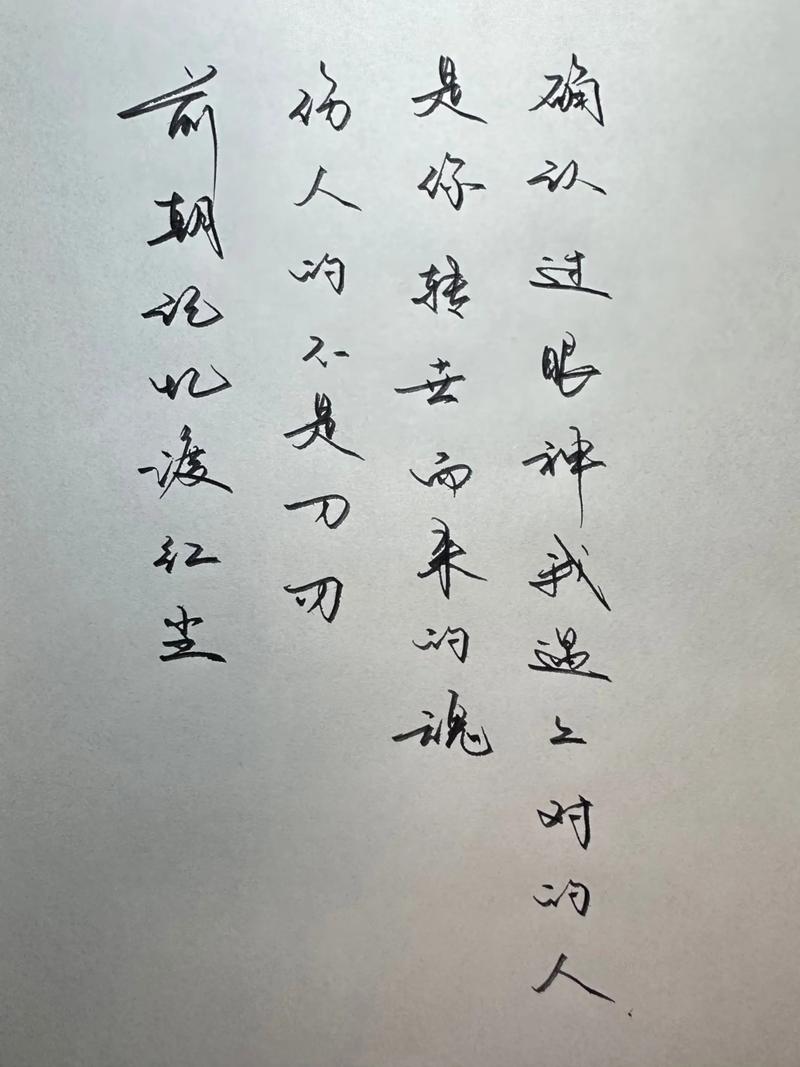 确认过眼神我遇上对的人
是你转世而来的魂
伤人的不是刀刃
前朝记忆渡红尘